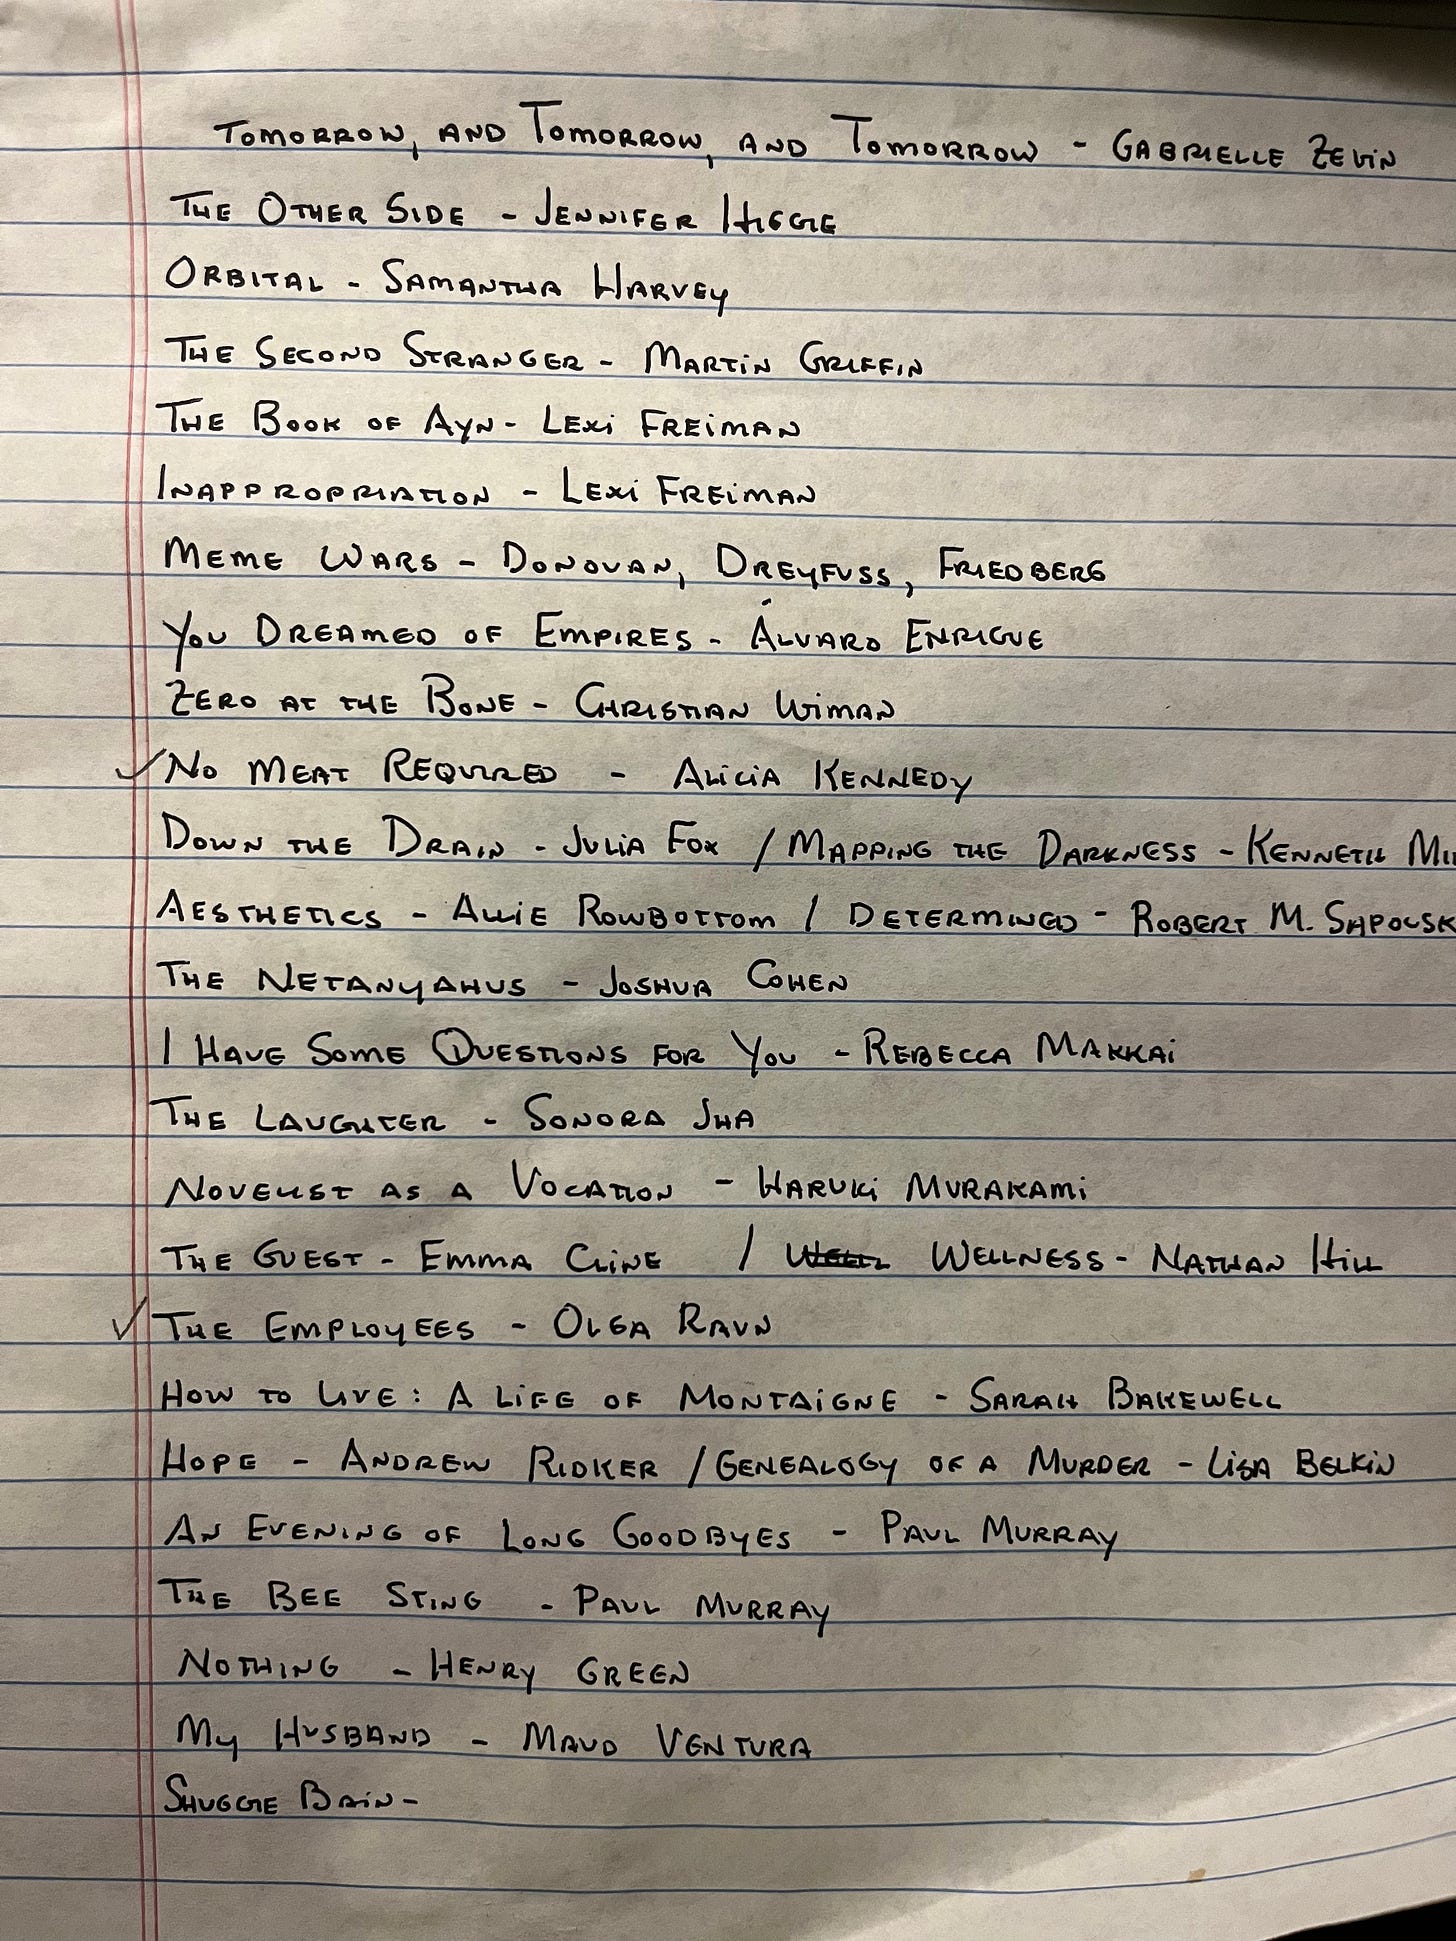 Tomorrow, and Tomorrow, and Tomorrow - Gabrielle Zevin
The Other Side - Jennifer Higgie
Orbital - Samantha Harvey
The Second Stranger - Martin Griffin
The Book of Ayn - Lexi Freiman
Inappropriation - Lexi Freiman
Meme Wars - Donovan, Dreyfuss, Friedberg
You Dreamed of Empires - Álvaro Enrigue
Zero at the Bone - Christian Wiman
✓ No Meat Required - Alicia Kennedy
Down the Drain - Julia Fox / Mapping the Darkness - Kenneth
Aesthetics - Allie Rowbottom / Determined - Robert M. Sapolsk
The Netanyahus - Joshua Cohen
I Have Some Questions for You - Rebecca Makkai
The Laughter - Sonora Jha
Novelist as a Vocation - Haruki Murakami
The Guest - Emma Cline / Wellness - Nathan Hill
✓ The Employees - Olga Ravn
How to Live: A Life of Montaigne - Sarah Bakewell
Hope - Andrew Ridker / Genealogy of a Murder - Lisa Belkin
An Evening of Long Goodbyes - Paul Murray
The Bee Sting - Paul Murray
Nothing - Henry Green
My Husband - Maud Ventura
Shuggie Bain -